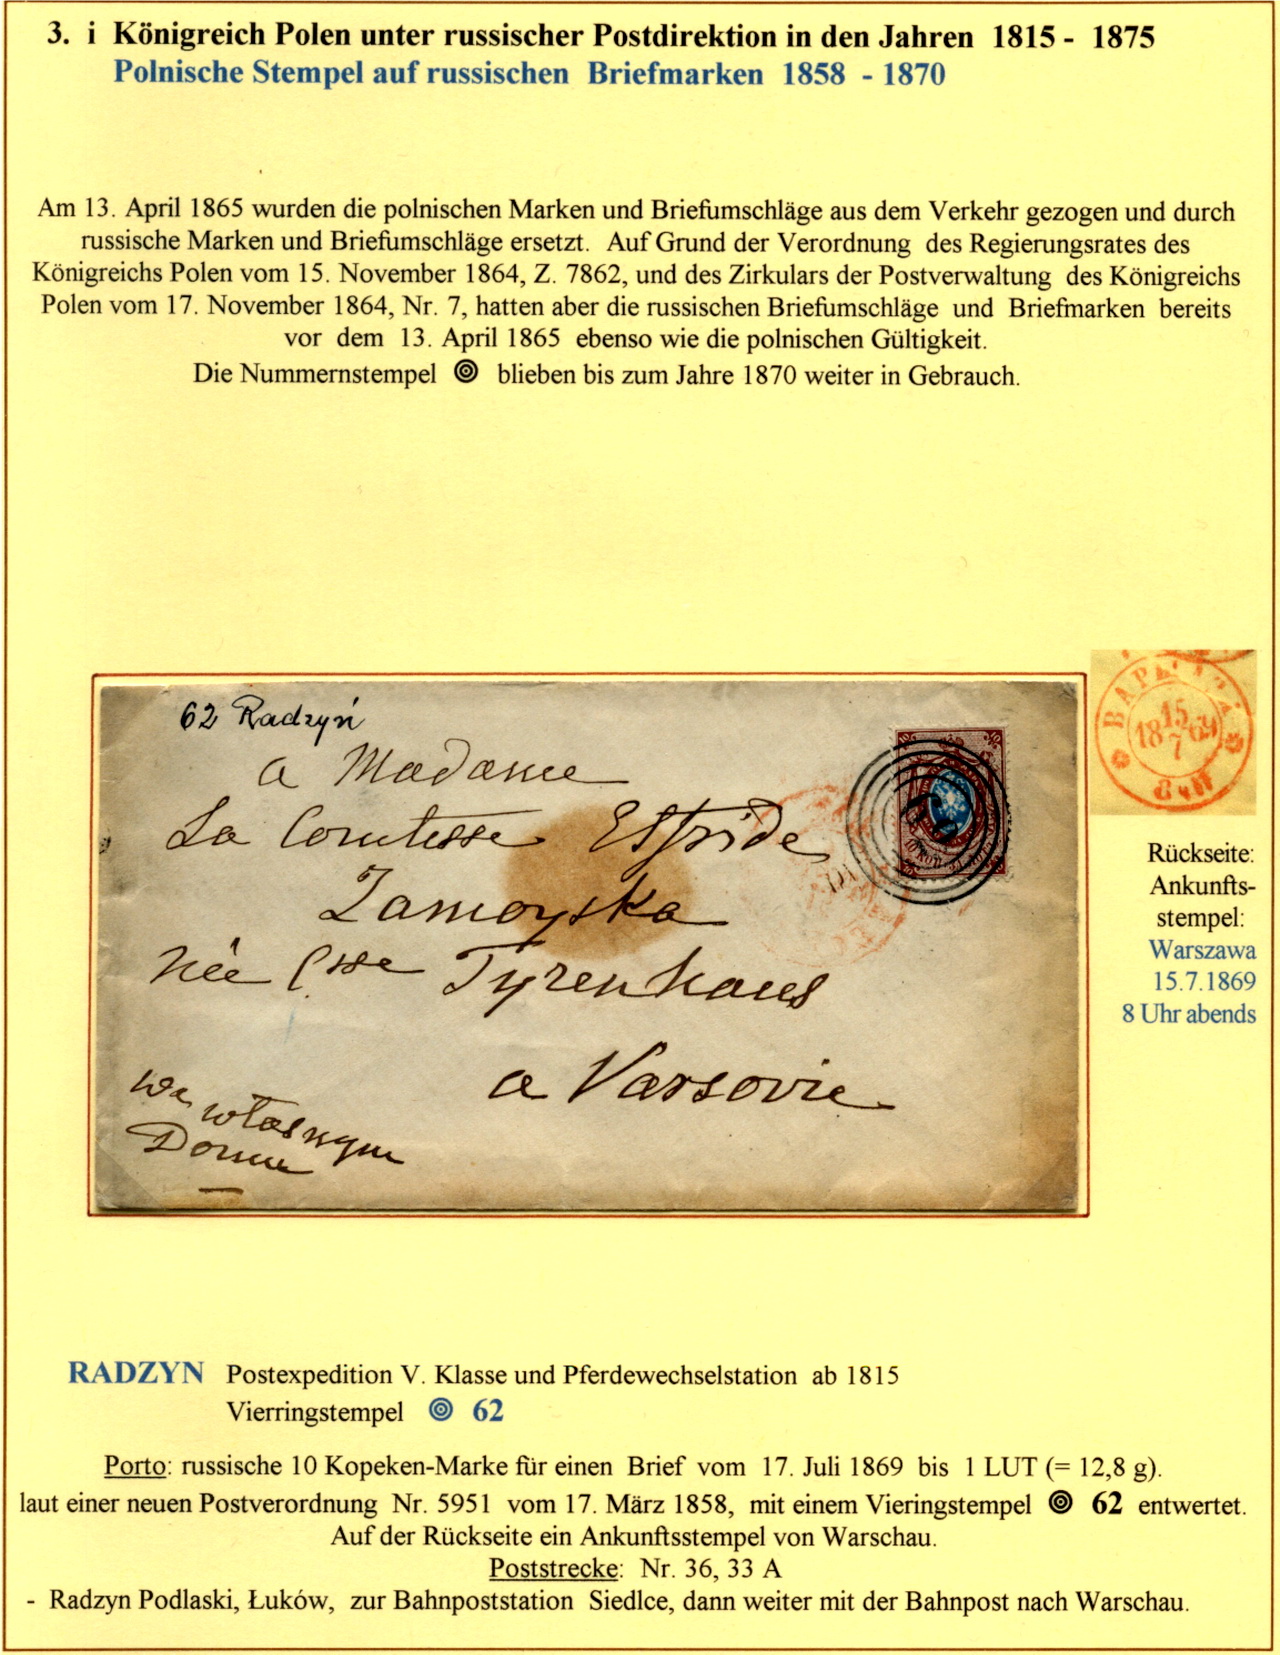 3. i Königreich Polen unter russischer Postdirektion in den Jahren 1815 - 1875
Polnische Stempel auf russischen Briefmarken 1858 - 1870
Am 13. April 1865 wurden die polnischen Marken und Briefumschläge aus dem Verkehr gezogen und durch
russische Marken und Briefumschläge ersetzt. Auf Grund der Verordnung des Regierungsrates des
Königreichs Polen vom 15. November 1864, Z. 7862, und des Zirkulars der Postverwaltung des Königreichs
Polen vom 17. November 1864, Nr. 7, hatten aber die russischen Briefumschläge und Briefmarken bereits
vor dem 13. April 1865 ebenso wie die polnischen Gültigkeit.
Die Nummernstempel blieben bis zum Jahre 1870 weiter in Gebrauch.
62 Radzyń
a Madame
La Comtesse Elfride
Zamoyska
née Csse Tyzenhaus
a Varsovie
we własnym
Domu
62
15
1869
7
8
Rückseite:
Ankunfts-
stempel:
Warszawa
15.7.1869
8 Uhr abends
RADZYN Postexpedition V. Klasse und Pferdewechselstation ab 1815
Vierringstempel 62
Porto: russische 10 Kopeken-Marke für einen Brief vom 17. Juli 1869 bis 1 LUT (= 12,8 g).
laut einer neuen Postverordnung Nr. 5951 vom 17. März 1858, mit einem Vieringstempel 62 entwertet.
Auf der Rückseite ein Ankunftsstempel von Warschau.
Poststrecke: Nr. 36, 33 A
- Radzyn Podlaski, Łuków, zur Bahnpoststation Siedlce, dann weiter mit der Bahnpost nach Warschau.